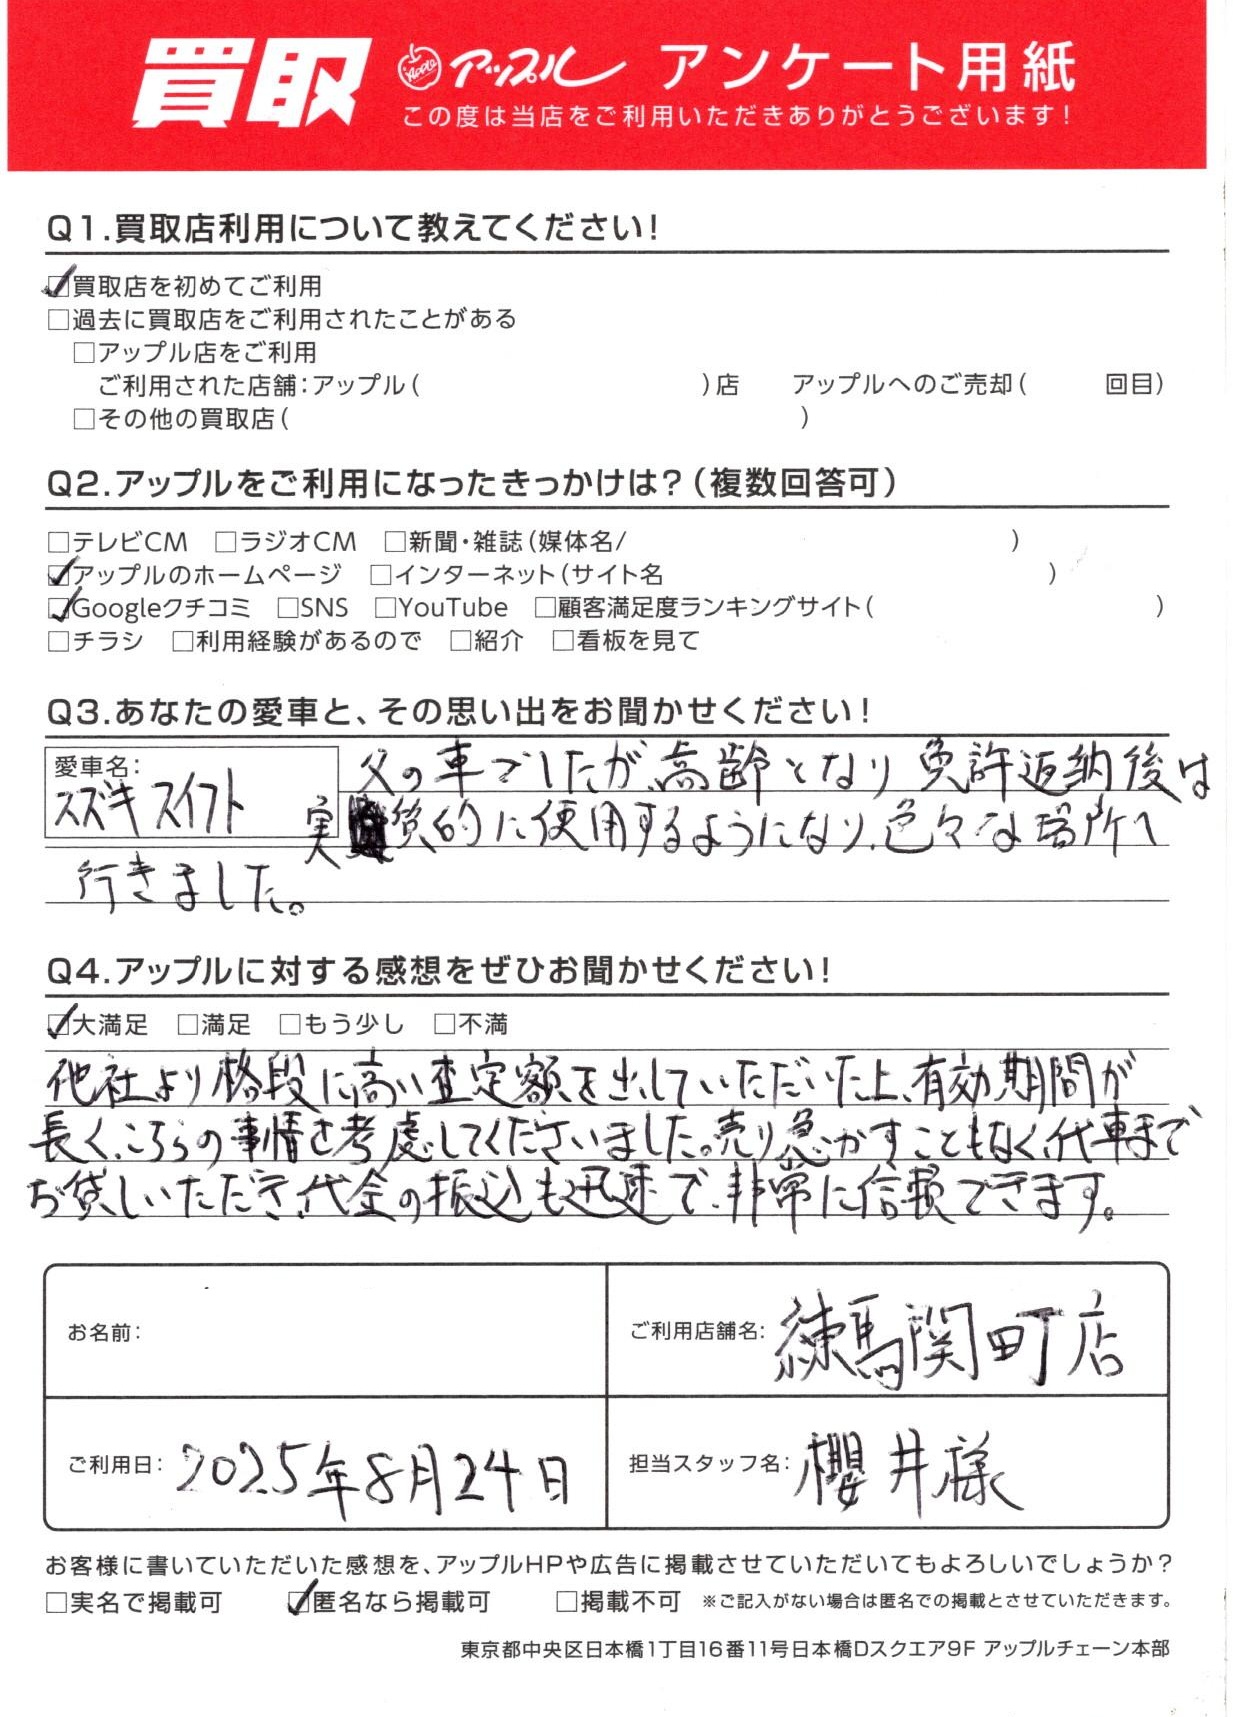 買取 Apple アップル アンケート用紙
この度は当店をご利用いただきありがとうございます!
Q1.買取店利用について教えてください!
☑買取店を初めてご利用
□過去に買取店をご利用されたことがある
□アップル店をご利用
ご利用された店舗:アップル( )店 アップルへのご売却( 回目)
□その他の買取店( )
Q2.アップルをご利用になったきっかけは?(複数回答可)
□テレビCM □ラジオCM □新聞・雑誌(媒体名/ )
☑アップルのホームページ □インターネット(サイト名 )
☑Googleクチコミ □SNS □YouTube □顧客満足度ランキングサイト( )
□チラシ □利用経験があるので □紹介 □看板を見て
Q3.あなたの愛車と、その思い出をお聞かせください!
愛車名:
スズキ スイフト
父の車でしたが、高齢となり免許返納後は
実質的に使用するようになり、色々な場所へ
行きました。
Q4.アップルに対する感想をぜひお聞かせください!
☑大満足 □満足 □もう少し □不満
他社より格段に高い査定額を出していただいた上、有効期間が
長く、こちらの事情を考慮してくださいました。売り急かすこともなく、代車まで
お貸しいただき、代金の振込も迅速で、非常に信頼できます。
お名前:
ご利用店舗名: 練馬関町店
ご利用日: 2025年8月24日
担当スタッフ名: 櫻井様
お客様に書いていただいた感想を、アップルHPや広告に掲載させていただいてもよろしいでしょうか?
□実名で掲載可 ☑匿名なら掲載可 □掲載不可 ※ご記入がない場合は匿名での掲載とさせていただきます。
東京都中央区日本橋1丁目16番11号日本橋Dスクエア9F アップルチェーン本部